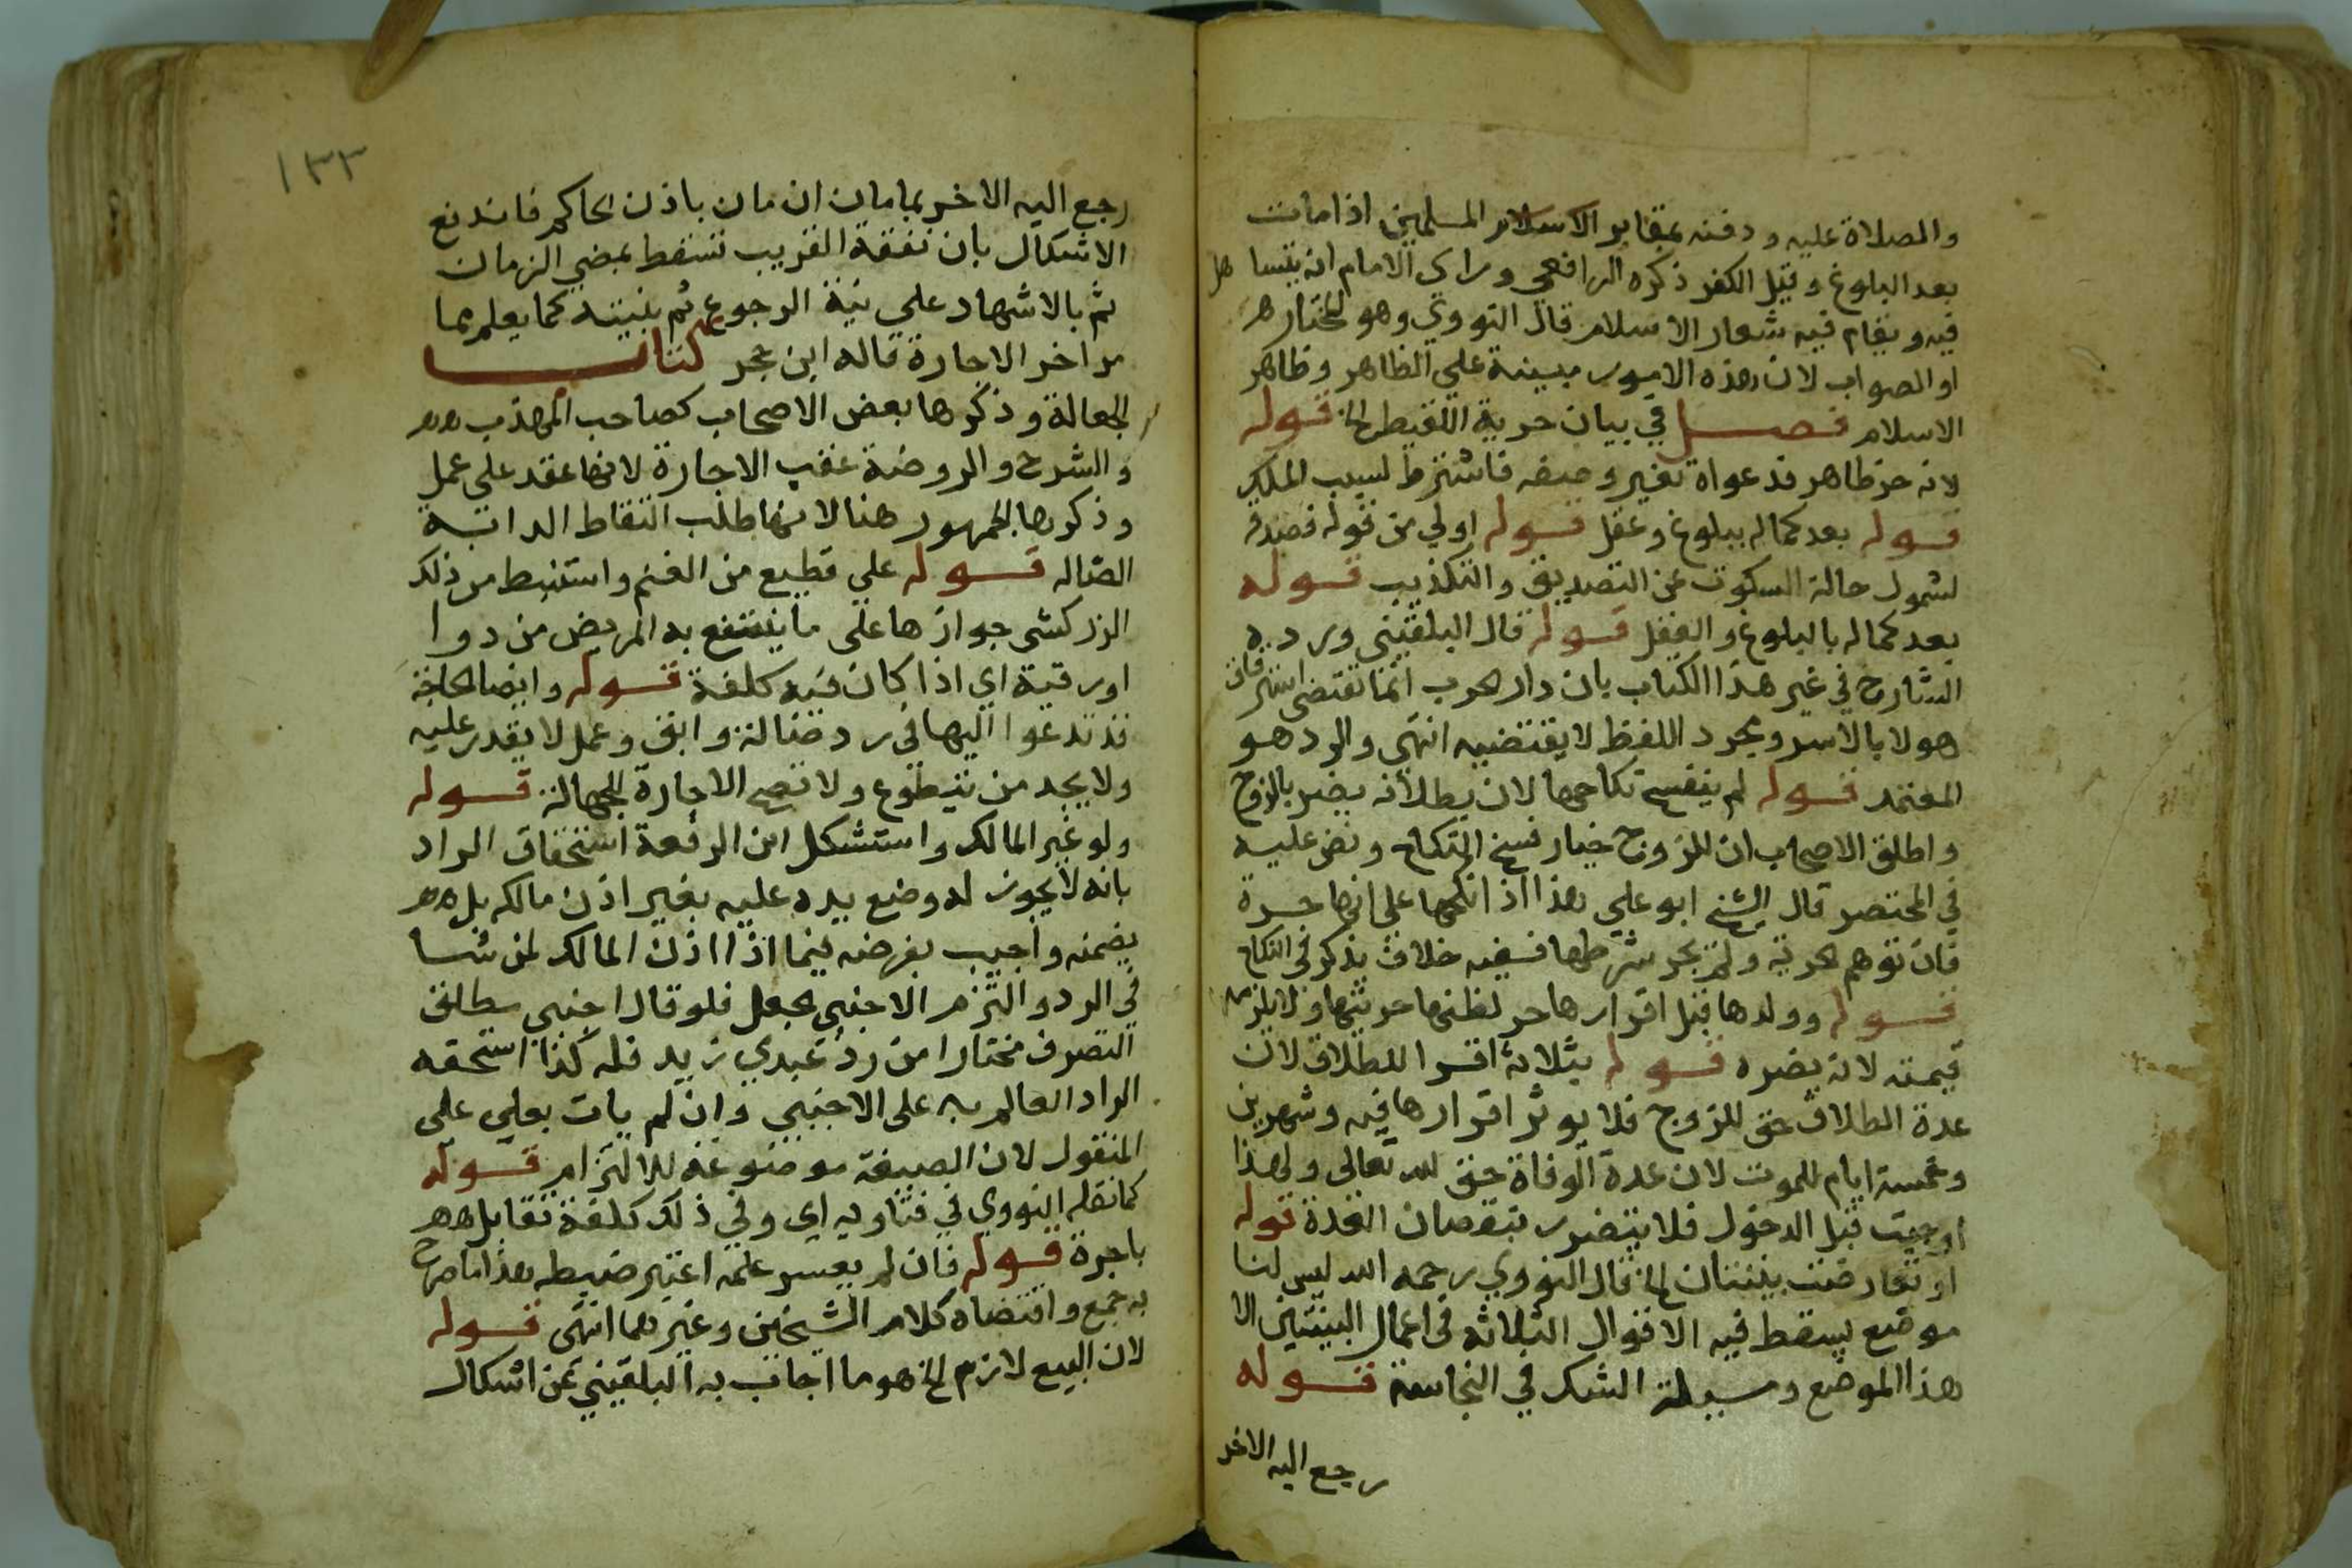 والصلاة عليه ودفنه بمقابر الاسلام المسلمين اذا مات
بعد البلوغ وقبل الكفر ذكره الرافعي وراى الامام انه يتساهل
فيه ويقام فيه شعار الاسلام قال النووي وهو المختار
او الصواب لان هذه الامور مبينة علي الظاهر وظاهر
الاسلام فصل في بيان حرية اللقيط الخ قوله
لانه حر ظاهر فدعواه تغير وصفه فاشترط لسبب الملك
قوله بعد كماله ببلوغ وعقل قوله اولي من قوله فصدقه
لشمول حالة السكوت عن التصديق والتكذيب قوله
بعد كماله بالبلوغ والعقل قوله قال البلقيني ورده
الشارح في غير هذا الكتاب بان دار الحرب انما تقتضي استرقاق
هولا بالاسر ومجرد اللفظ لا يقتضيه انتهى والرد هو
المعتمد قوله لم ينفسخ نكاحها لان بطلانه يضر بالزوج
واطلق الاصحاب ان للزوج خيار فسخ النكاح ونص عليه
في المختصر قال الشيخ ابو علي هذا اذا نكحها على انها حرة
فان توهم الحرية ولم يجر شرطها ففيه خلاف يذكر في النكاح
قوله وولدها قبل اقرارها حر لظنه حريتها ولا يلزمه
قيمته لانه يضره قوله بثلاثة اقرا للطلاق لان
عدة الطلاق حق للزوج فلا يوثر اقرارها فيه وشهرين
وخمسة ايام للموت لان عدة الوفاة حق لله تعالى ولهذا
اوجبت قبل الدخول فلا يتضرر بنقصان العدة قوله
او تعارضت بينتان الخ قال النووي رحمه الله ليس لنا
موضع يسقط فيه الاقوال الثلاثه في اعمال البينتين الا
هذا الموضع ومسيلة الشك في النجاسة قوله
رجع اليه الاخر
١٣٣
رجع اليه الاخر بما مان ان مان باذن الحاكم فاندفع
الاشكال بان نفقة القريب تسقط بمضي الزمان
ثم بالاشهاد علي نية الرجوع ثم بنيته كما يعلم مما
مر اخر الاجارة قاله ابن حجر كتاب
الجعالة وذكرها بعض الاصحاب كصاحب المهذب
والشرح والروضة عقب الاجارة لانها عقد علي عمل
وذكرها الجمهور هنا لانها طلب التقاط الدابة
الضاله قوله علي قطيع من الغنم واستنبط من ذلك
الزركشي جوازها على ما ينتفع به المريض من دوا
او رقية اي اذا كان فيه كلفة قوله وايضا الحاجة
قد تدعوا اليها في رد ضالة وابق وعمل لا يقدر عليه
ولا يجد من يتطوع ولا تصح الاجارة للجهالة قوله
ولو غير المالك واستشكل ابن الرفعة استحقاق الراد
بانه لا يجوز له وضع يده عليه بغير اذن مالكه بل
يضمنه واجيب بفرضه فيما اذا اذن المالك لمن شا
في الرد والتزم الاجنبي بجعل فلو قال اجنبي مطلق
التصرف مختارا من رد عبدي زيد فله كذا استحقه
الراد العالم به على الاجنبي وان لم يات بعلي على
المنقول لان الصيغة موضوعة للالتزام قوله
كما نقله النووي في فتاويه اي وفي ذلك كلفة تقابل
باجرة قوله فان لم يعسر علمه اعتبر ضبطه هذا ما صرح
به جمع واقتضاه كلام الشيخين وغيرهما انتهى قوله
لان البيع لازم الخ هو ما اجاب به البلقيني عن اشكال